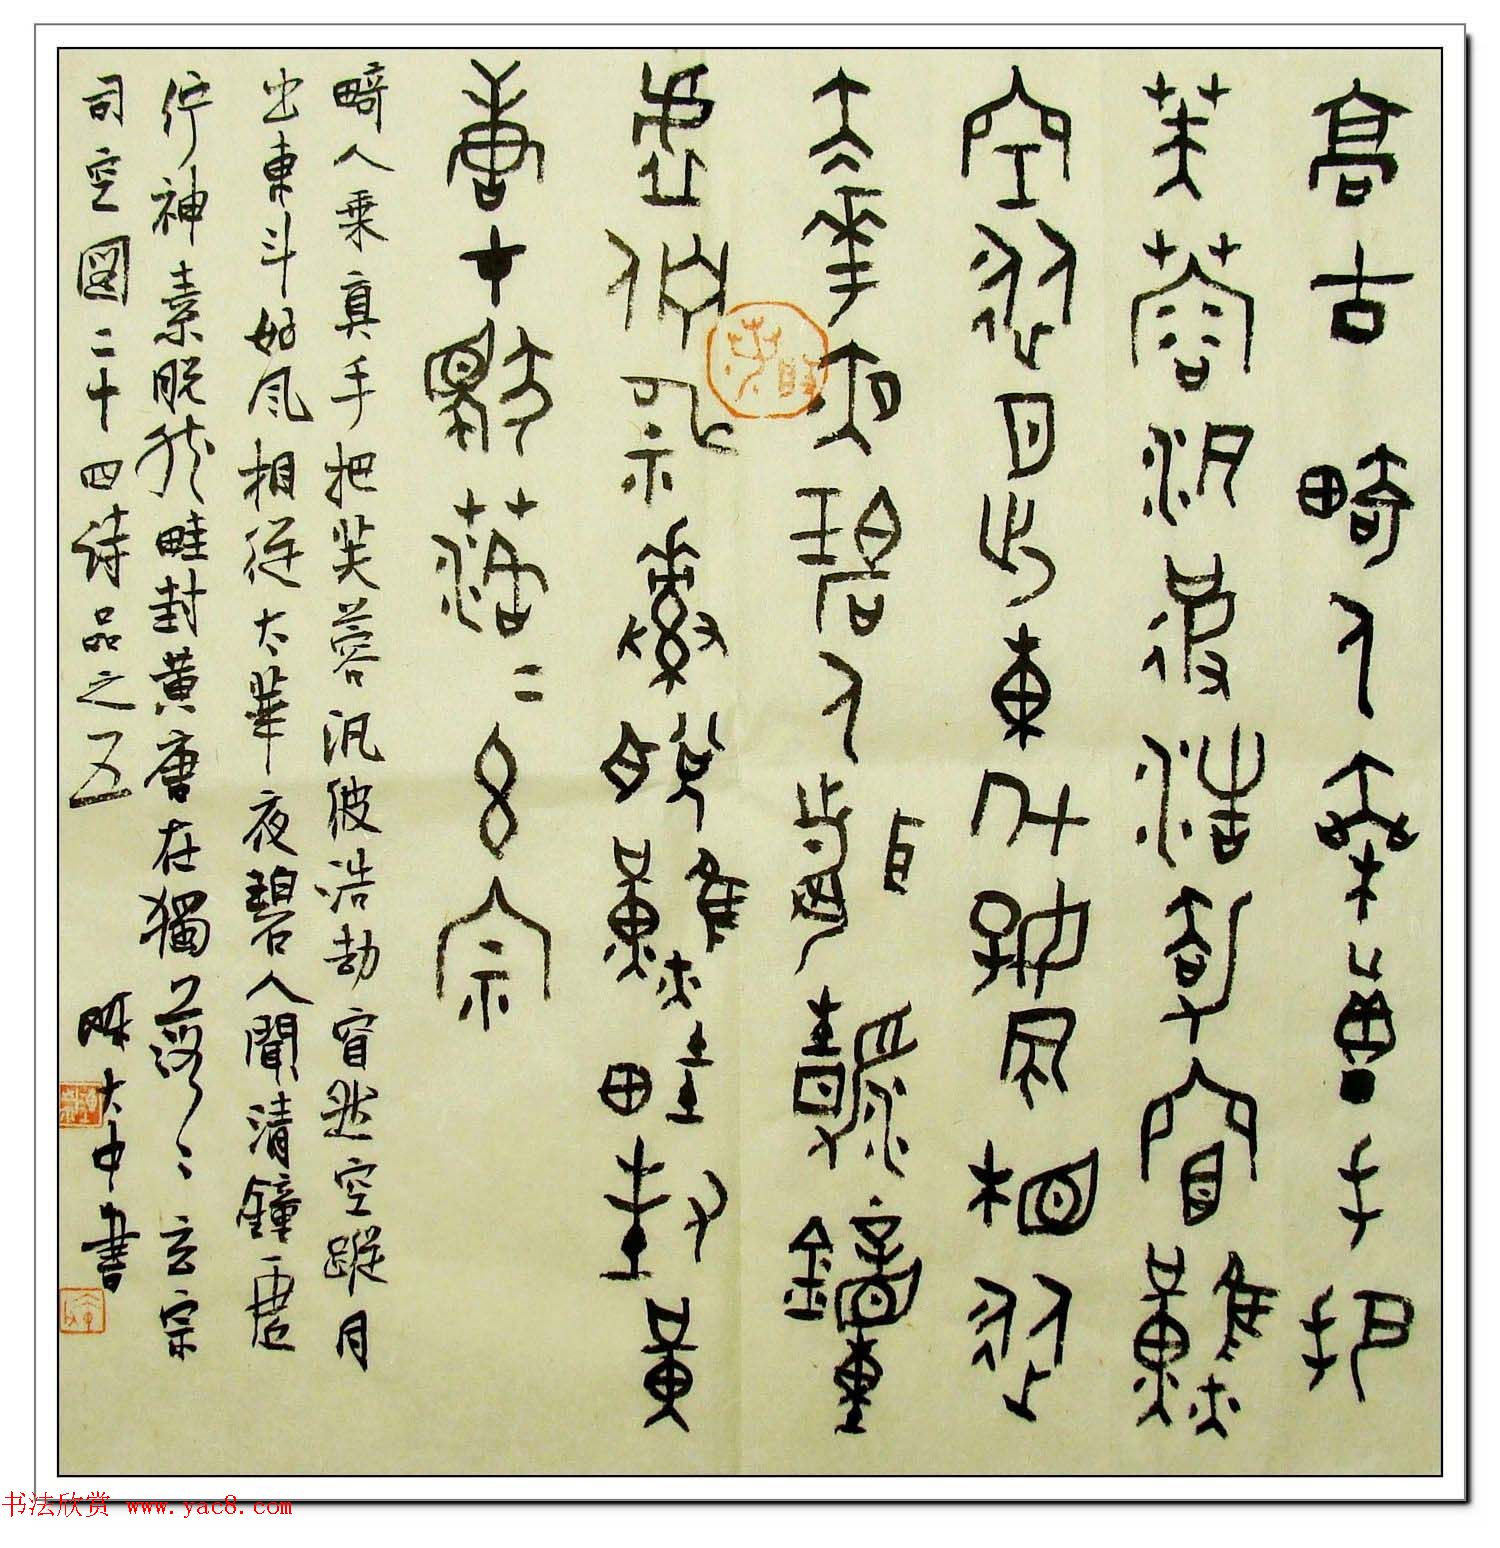 高古 畸人乘真手把
芙蓉汎彼浩劫窅然
空從月出東斗好風相從
太華夜碧人聞清鐘
虛佇神素脫然畦封黃
唐在獨落〻玄宗
畸人乘真手把芙蓉汎彼浩劫窅然空蹤月
出東斗好風相從太華夜碧人聞清鐘虛
佇神素脫然畦封黃唐在獨落〻玄宗
司空圖二十四詩品之五 陳大中書
书法欣赏 www.yac8.com